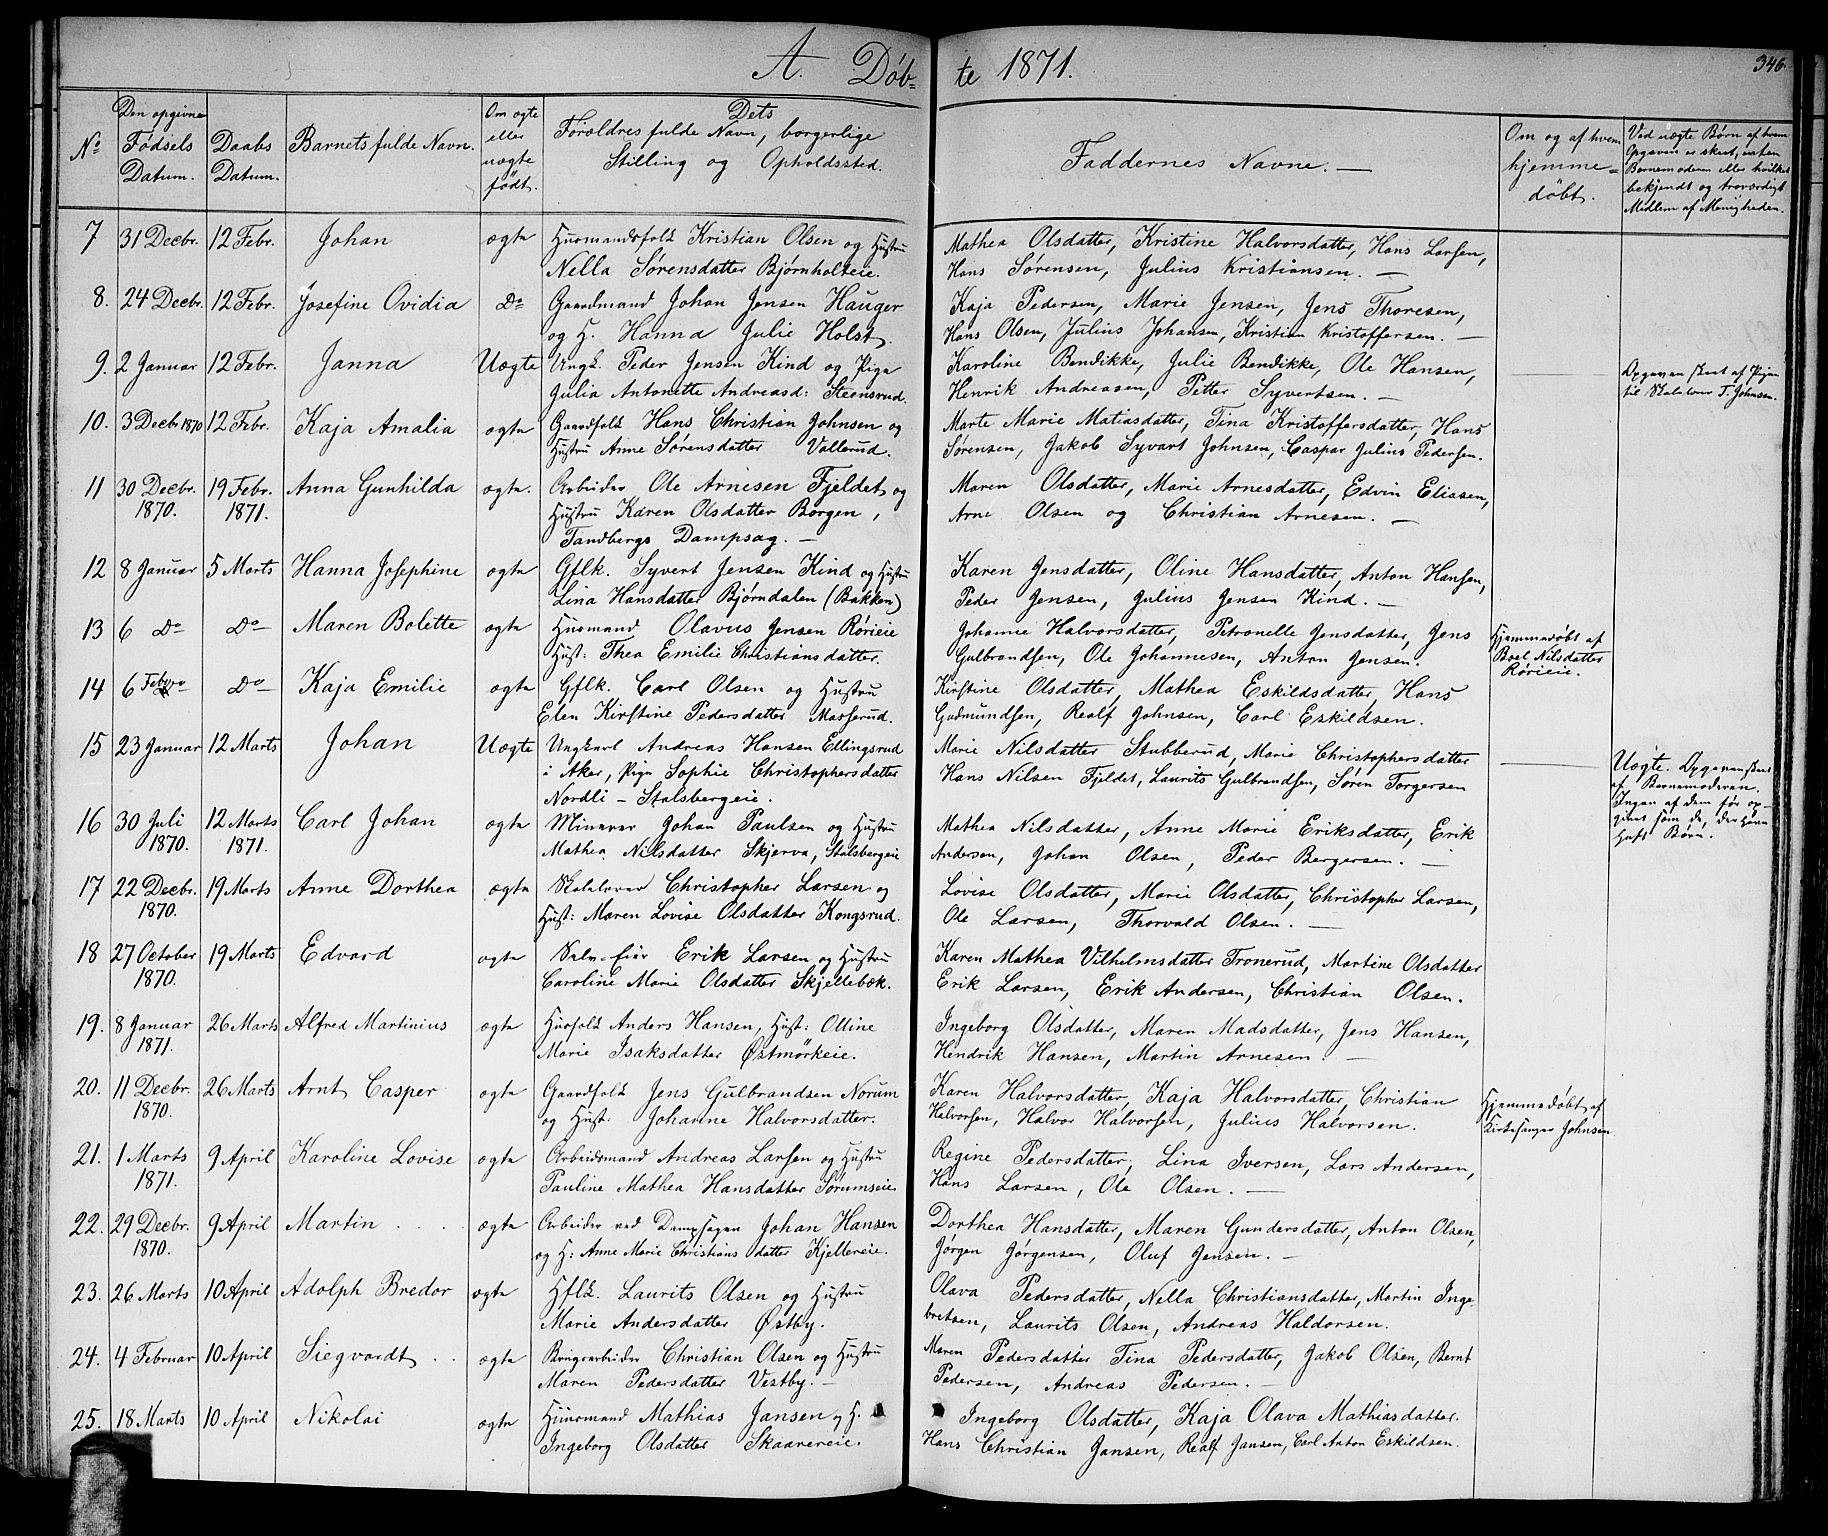 A. Døbte 1871.
346.
No
Den opgivne Fødsels Datum.
Daabs Datum.
Barnets fulde Navn.
Om ægte eller uægte født.
Dets Forældres fulde Navn, borgerlige Stilling og Opholdssted.
Faddernes Navne. —
Om og af hvem hjemme=døbt.
Ved uægte Børn af hvem Opgaven er skeet, enten Barnemoderen eller hvilket bekjendt og troværdigt Medlem af Menigheden.
7 31 Decbr. 12 Febr. Johan ægte Huusmandsfolk Kristian Olsen og Hustru
Nella Sørensdatter Bjørnholteie.
Mathea Olsdatter, Kristine Halvorsdatter, Hans Larsen,
Hans Sørensen, Julius Kristiansen. —
8. 24 Decbr. 12 Febr. Josefine Ovidia Do Gaardmand Johan Jensen Hauger
og H. Hanna Julie Holst.
Kaja Pedersen, Marie Jensen, Jens Thoresen,
Hans Olsen, Julius Johansen, Kristian Kristoffersen. —
9. 2 Januar 12 Febr. Janna Uægte Ungk. Peder Jensen Kind og Pige
Julia Antonette Andreasd: Steensrud.
Karoline Bendikke, Julie Bendikke, Ole Hansen,
Henrik Andreasen, Petter Syvertsen. —
Opgaven skeet af Pigen
til Skolelærer T. Johnsen.
10. 3 Decbr 1870 12 Febr. Kaja Amalia ægte Gaardfolk Hans Christian Johnsen og
Hustru Anne Sørensdatter Vallerud.
Marte Marie Matiasdatter, Tina Kristoffersdatter, Hans
Sørensen, Jakob Syvart Johnsen, Caspar Julius Pedersen.
11 30 Decbr. 19 Febr. Anna Gunhilda ægte. Arbeider Ole Arnesen Fjeldet og
1870. 1871. Hustru Karen Olsdatter Borgen,
Tandbergs Dampsag. —
Maren Olsdatter, Marie Arnesdatter, Edvin Eliasen,
Arne Olsen og Christian Arnesen. —
12 8 Januar 5 Marts Hanna Josephine ægte Gflk. Syvert Jensen Kind og Hustru
Lina Hansdatter Bjørndalen (Bakken)
Karen Jensdatter, Oline Hansdatter, Anton Hansen,
Peder Jensen, Julius Jensen Kind. —
13 6 Do Do Maren Bolette ægte Husmand Olavus Jensen Rørieie
Hust: Thea Emilie Christiansdatter.
Johanne Halvorsdatter, Petronelle Jensdatter, Jens
Gulbrandsen, Ole Johannesen, Anton Jensen.
Hjemmedøbt af
Boel Nilsdatter
Rørieie.
14 6 Febr Do Kaja Emilie ægte Gflk. Carl Olsen og Hustru
Elen Kirstine Pedersdatter Masserud.
Kirstine Olsdatter, Mathea Eskildsdatter, Hans
Gudmundsen, Realf Johnsen, Carl Eskildsen.
15 23 Januar 12 Marts Johan Uægte Ungkarl Andreas Hansen Ellingsrud
i Aker, Pige Sophie Christophersdatter
Nordli – Stalsbergeie.
Marie Nilsdatter Stubberud, Marie Christophersdatter
Hans Nilsen Fjeldet, Laurits Gulbrandsen, Søren Torgersen
Uægte. Opgaven skeet
af Barnemoderen.
Ingen af dem før op-
givet som de, der have
havt Børn.
16 30 Juli 12 Marts Carl Johan ægte Minerer Johan Paulsen og Hustru
1870. 1871. Mathea Nilsdatter Skjerva, Stalsbergeie
Mathea Nilsdatter, Anne Marie Eriksdatter, Erik
Andersen, Johan Olsen, Peder Bergersen. —
17 22 Decbr. 19 Marts Anne Dorthea ægte Skolelærer Christopher Larsen og
1870. Hust: Maren Lovise Olsdatter Kongsrud.
Lovise Olsdatter, Marie Olsdatter, Christopher Larsen,
Ole Larsen, Thorvald Olsen. —
18 27 October 19 Marts Edvard ægte Selv-eier Erik Larsen og Hustru
1870. Caroline Marie Olsdatter Skjellebæk.
Karen Mathea Vilhelmsdatter Tronerud, Martine Olsdatter
Erik Larsen, Erik Andersen, Christian Olsen.
19. 8 Januar 26 Marts Alfred Martinius ægte Husfolk Anders Hansen, Hust: Olline
1871. Marie Isaksdatter Østmørkeie.
Ingeborg Olsdatter, Maren Madsdatter, Jens Hansen,
Hendrik Hansen, Martin Arnesen —
20. 11 Decbr. 26 Marts Arnt Casper ægte Gaardfolk Jens Gulbrandsen Norum
1870. og Hust: Johanne Halvorsdatter.
Karen Halvorsdatter, Kaja Halvorsdatter, Christian
Halvorsen, Halvor Halvorsen, Julius Halvorsen.
Hjemmedøbt af
Kirkesanger Johnsen
21. 1 Marts 9 April Karoline Lovise ægte Arbeidsmand Andreas Larsen og Hustru
1871. Pauline Mathea Hansdatter Sørumseie.
Regine Pedersdatter, Lina Iversen, Lars Andersen,
Hans Larsen, Ole Olsen. —
22. 29 Decbr. 9 April Martin ægte Arbeider ved Dampsagen Johan Hansen
1870. og H: Anne Marie Christiansdatter Kjellereie.
Dorthea Hansdatter, Maren Gundersdatter, Anton Olsen,
Jørgen Jørgensen, Oluf Jensen. —
23. 26 Marts 10 April Adolph Bredor ægte Hflk. Laurits Olsen og Hustru
Marie Andersdatter Østby.
Olava Pedersdatter, Nella Christiansdatter, Martin Inge
bretsen, Laurits Olsen, Andreas Haldorsen.
24. 4 Februar 10 April Siegvardt ægte Brugsarbeider Christian Olsen og Hustru
Maren Pedersdatter Vestby. —
Maren Pedersdatter Tina Pedersdatter, Jakob Olsen, Bernt
Pedersen, Andreas Pedersen. —
25. 18 Marts 10 April Nikolai ægte Huusmand Mathias Jansen og H.
Ingeborg Olsdatter Skaarereie.
Ingeborg Olsdatter, Kaja Olava Mathiasdatter.
Hans Christian Jansen, Realf Jansen, Carl Anton Eskildsen.